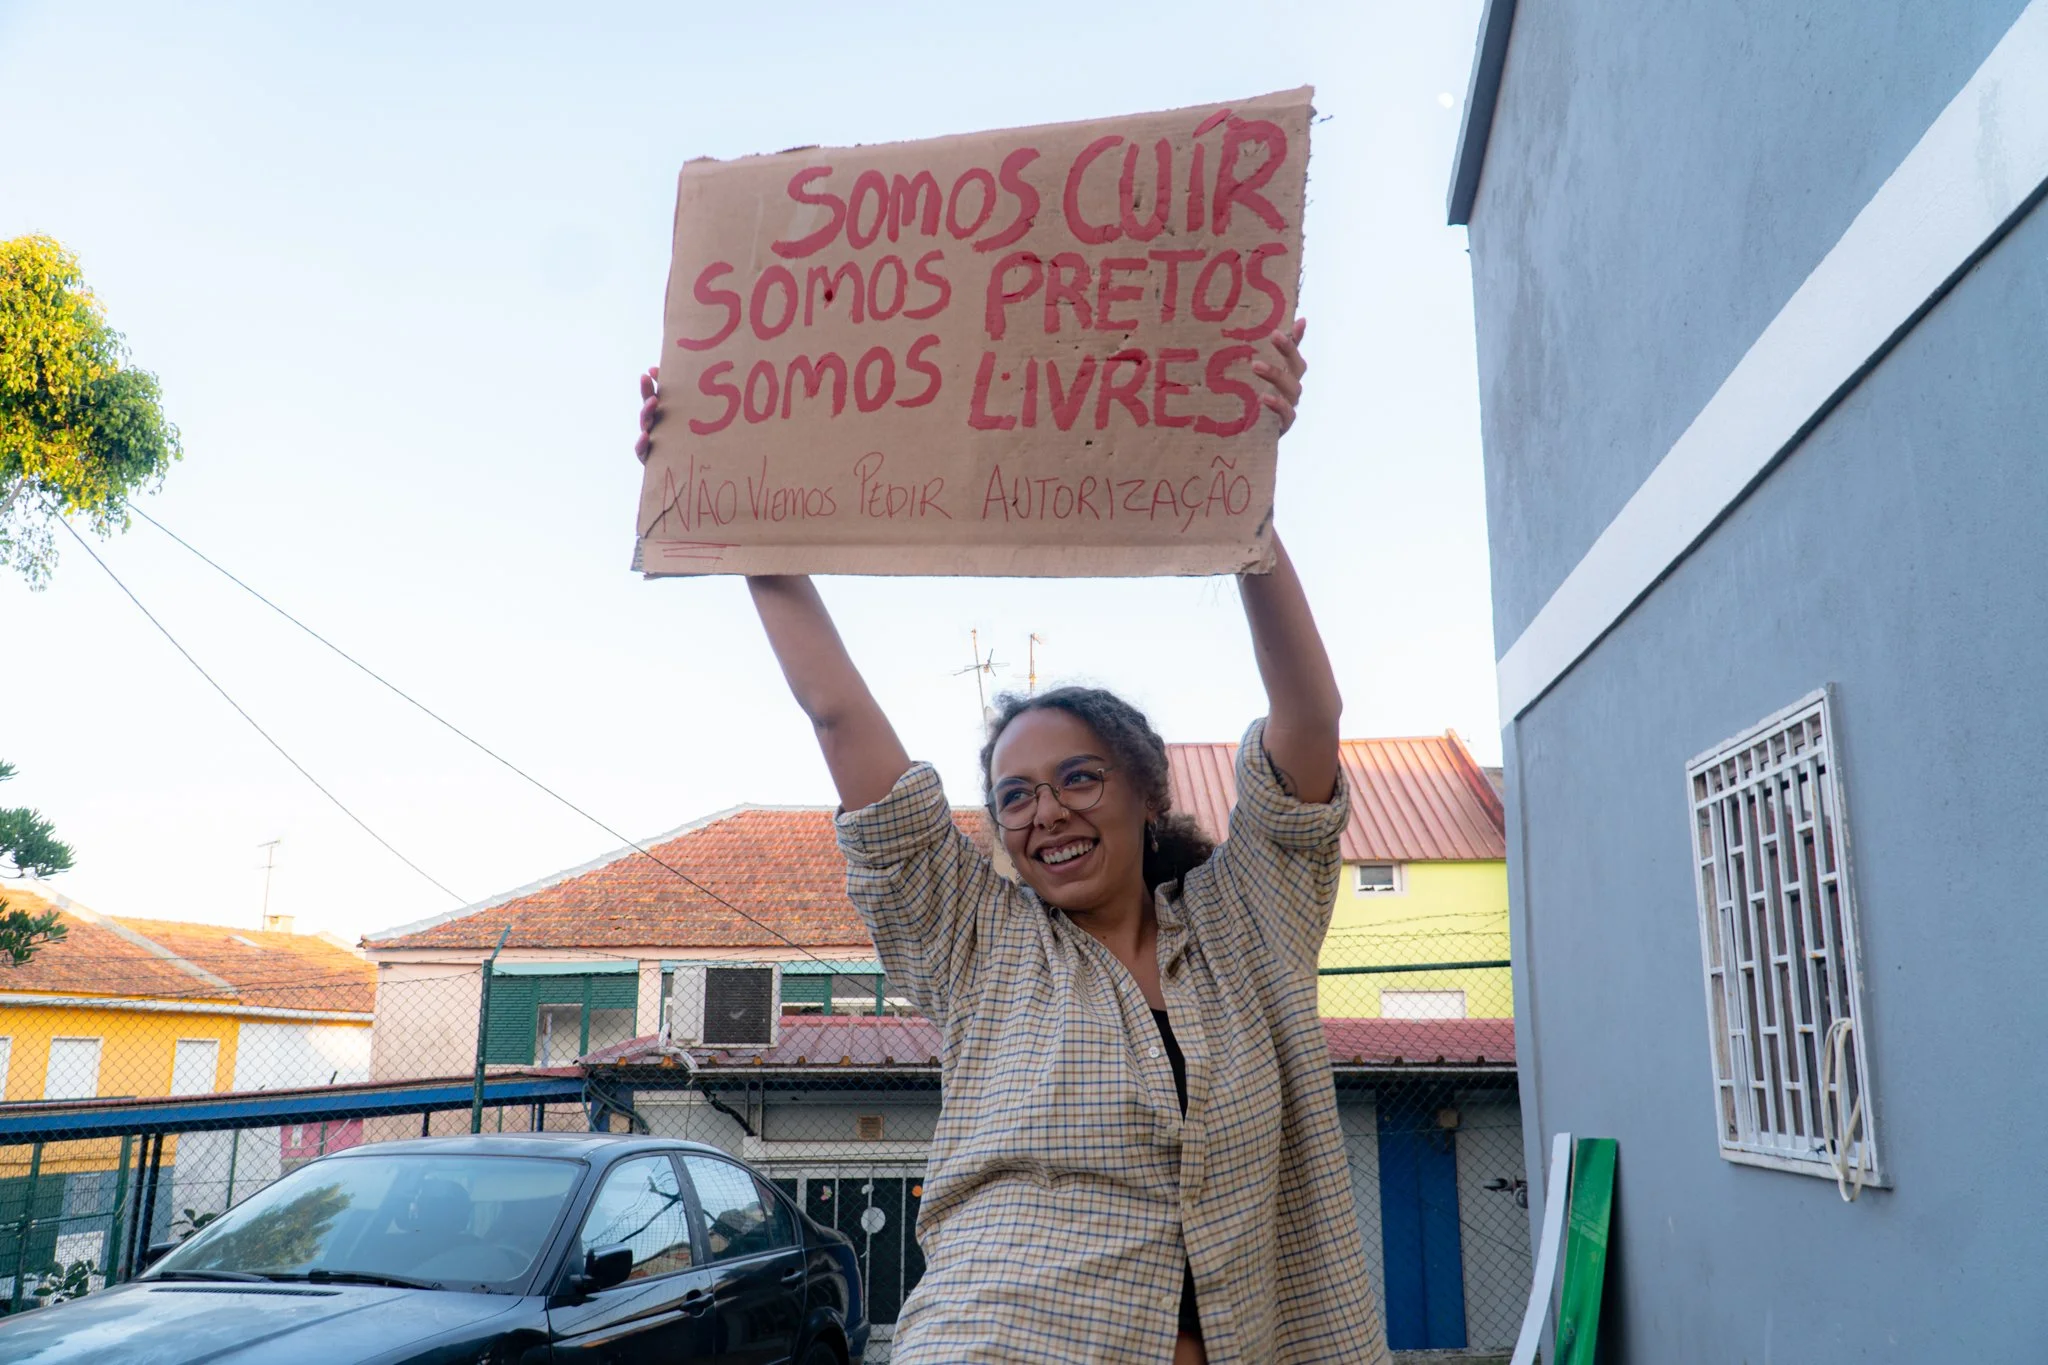 SOMOS CUÍR
SOMOS PRETOS
SOMOS LIVRES
NÃO VIEMOS PEDIR AUTORIZAÇÃO